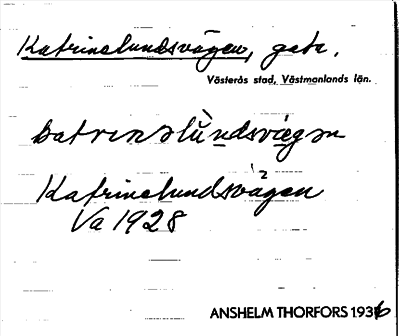 Katrinelundsvägen, gata.
Västerås stad, Västmanlands län.
katrinəlùndsvægən
Katrinelundsvägen
Va 1928
ANSHELM THORFORS 1936